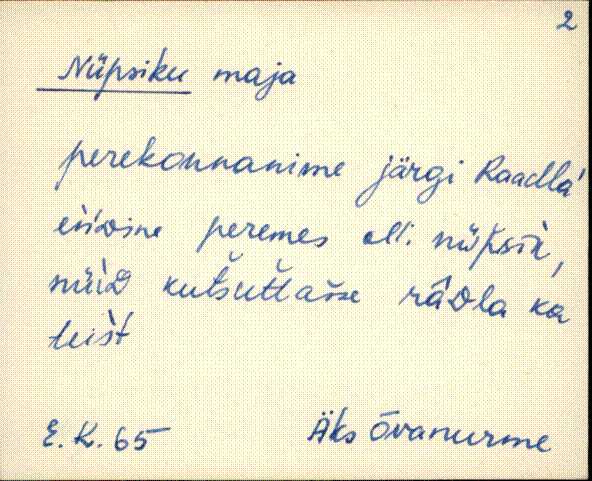 2
Nüpsiku maja
perekonnanime järgi Raadla
endine peremes olli nüpsik,
nüid kutsuttasse râdla ka
teist
E. K. 65 Äks Õvanurme